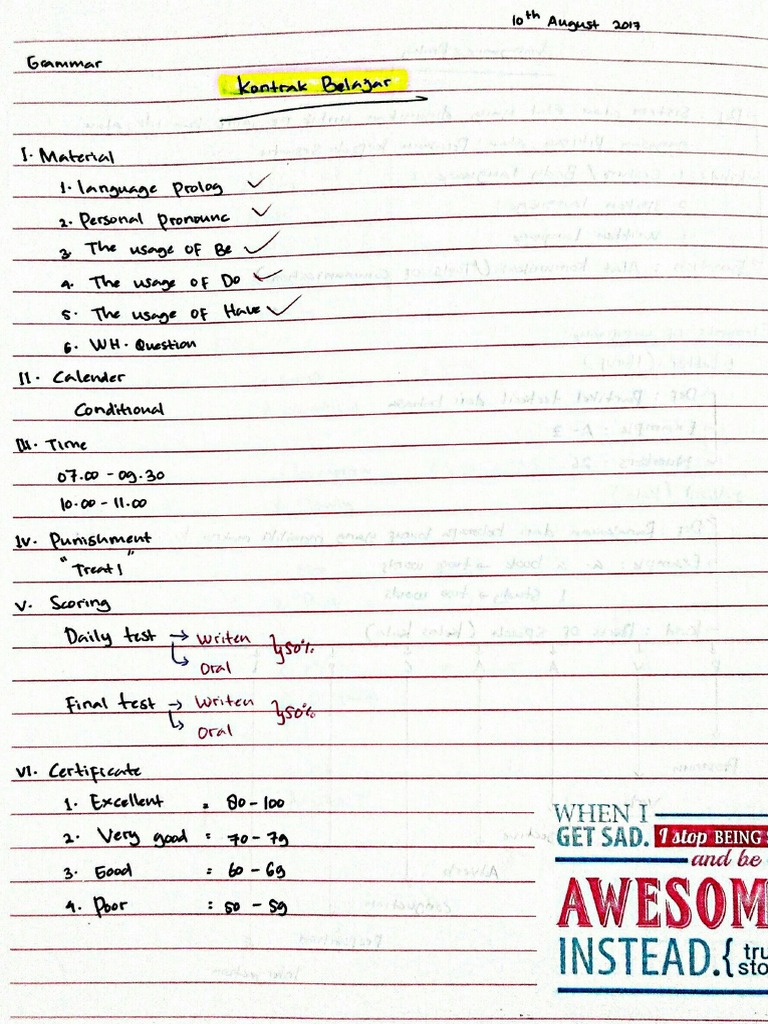 10th August 2017
Grammar
Kontrak Belajar
I. Material
1. language prolog ✓
2. Personal pronounc ✓
3. The usage of Be ✓
4. The usage of Do ✓
5. The usage of Have ✓
6. WH. Question
II. Calender
Conditional
III. Time
07.00 - 09.30
10.00 - 11.00
IV. Punishment
"Treat!"
V. Scoring
Daily test → Writen } 50%
↳ Oral
Final test → Writen } 50%
↳ Oral
VI. Certificate
1. Excellent = 80 - 100
2. Very good = 70 - 79
3. Good = 60 - 69
4. Poor = 50 - 59
WHEN I
GET SAD. I stop BEING
and be
AWESOM
INSTEAD. { tru
sto